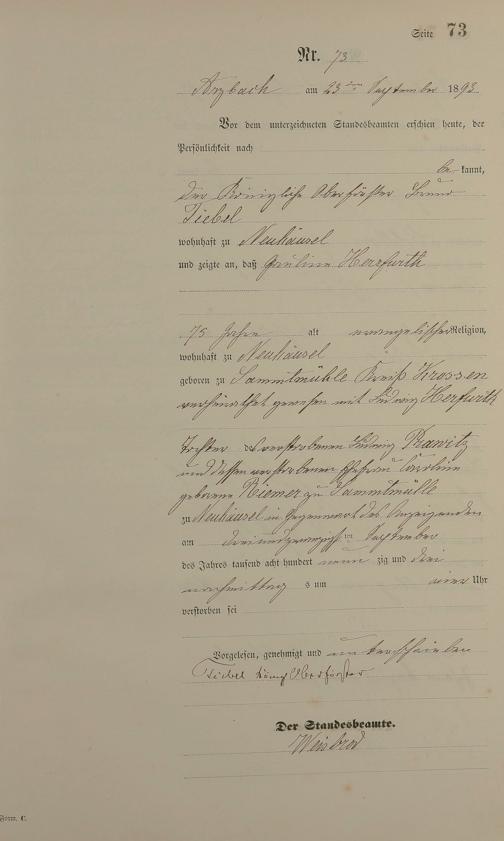 Seite 73
Nr. 73
Arzbach am 23ten September 1893
Vor dem unterzeichneten Standesbeamten erschien heute, der
Persönlichkeit nach
bekannt,
der Königliche Oberförster
Tiebel
wohnhaft zu Neuhäusel
und zeigte an, daß Pauline Herfurth
75 Jahre alt evangelischer Religion,
wohnhaft zu Neuhäusel
geboren zu Sammtmühle Kreiß Krossen
verheirathet gewesen mit Ludwig Herfurth
Tochter des verstorbenen Ludwig Prawitz
und dessen verstorbenen Ehefrau Caroline
geborene Riemer zu Sammtmühle
zu Neuhäusel in Gegenwart des Anzeigenden
am dreiundzwanzigsten September
des Jahres tausend acht hundert neunzig und drei
nachmittags um vier Uhr
verstorben sei
Vorgelesen, genehmigt und unterschrieben
Tiebel Königl Oberförster
Der Standesbeamte.
Weisbrod
Form. C.